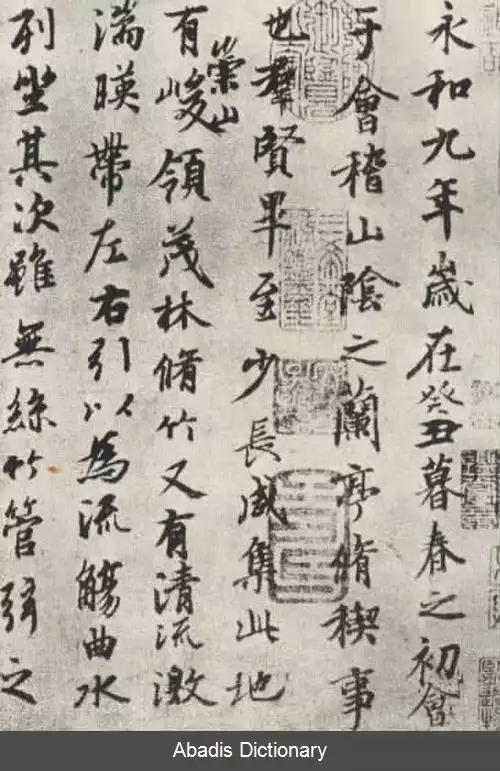 永和九年歲在癸丑暮春之初會
于會稽山陰之蘭亭脩稧事
也羣賢畢至少長咸集此地
有崇山峻領茂林脩竹又有清流激
湍暎帶左右引以為流觴曲水
列坐其次雖無絲竹管弦之
Abadis Dictionary